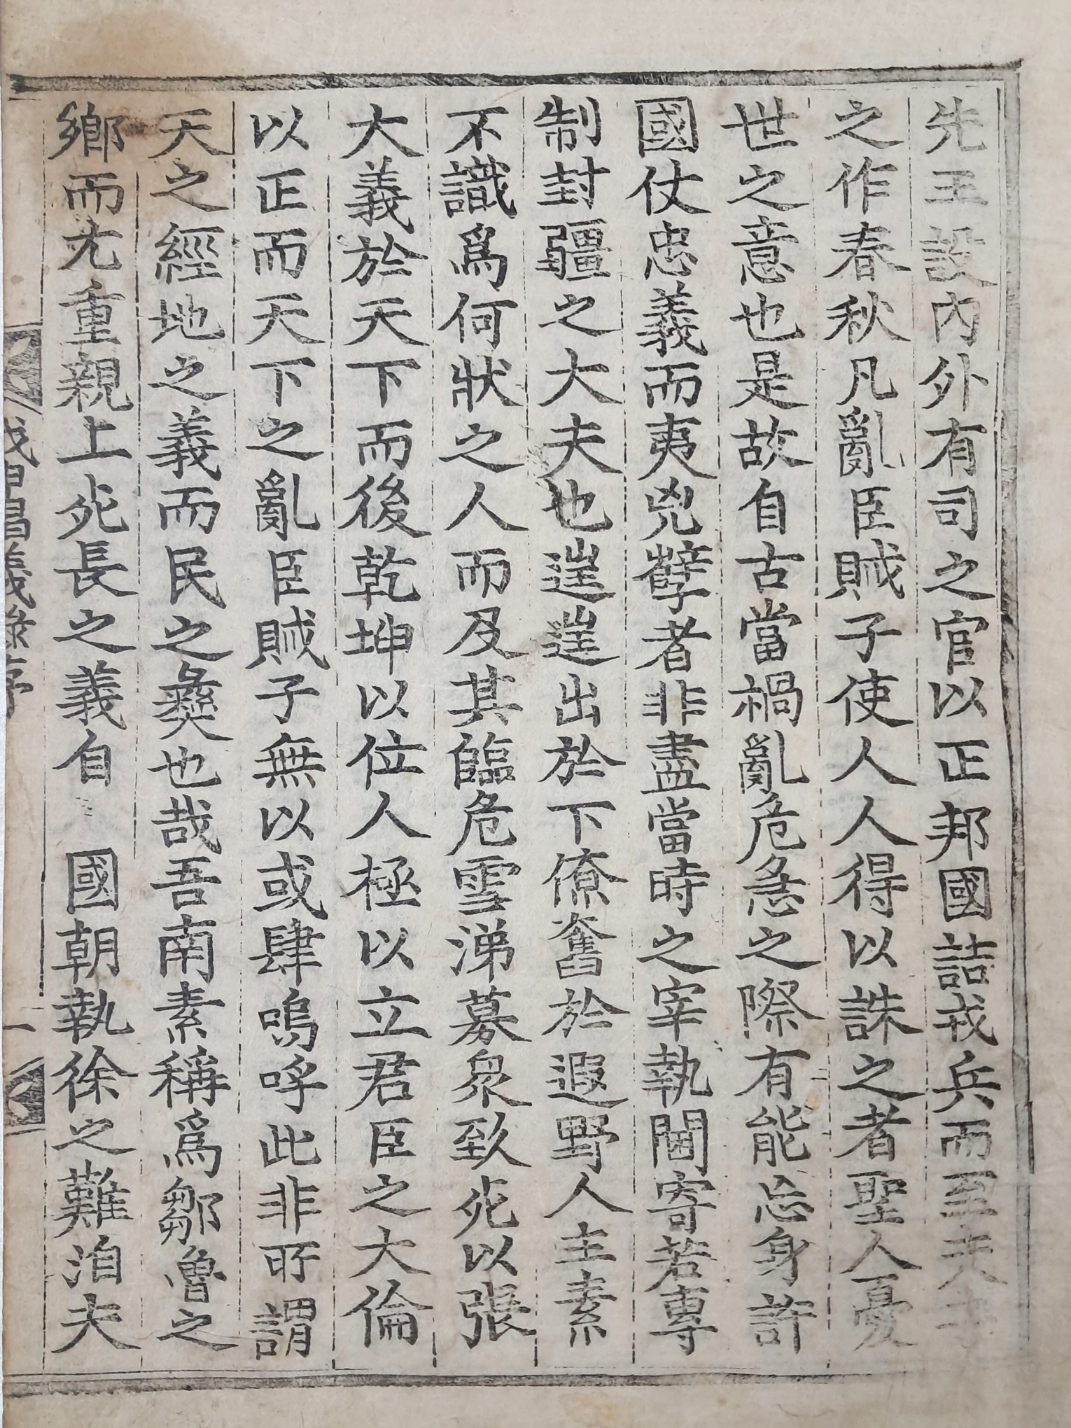 先王設內外有司之官以正邦國詰戎兵而至夫子
之作春秋凡亂臣賊子使人人得以誅之者聖人憂
世之意也是故自古當禍亂危急之際有能忘身許
國仗忠義而夷兇孼者非盡當時之宰執閫寄若專
制封疆之大夫也逬逬出於下僚奮於遐野人主素
不識爲何狀之人而及其臨危雪涕募衆致死以張
大義於天下而後乾坤以位人極以立君臣之大倫
以正而天下之亂臣賊子無以或肆嗚呼此非所謂
天之經地之義而民之彜也哉吾南素稱爲鄒魯之
鄕而尤重親上死長之義自 國朝執徐之難洎夫
戊申昌義錄序 一